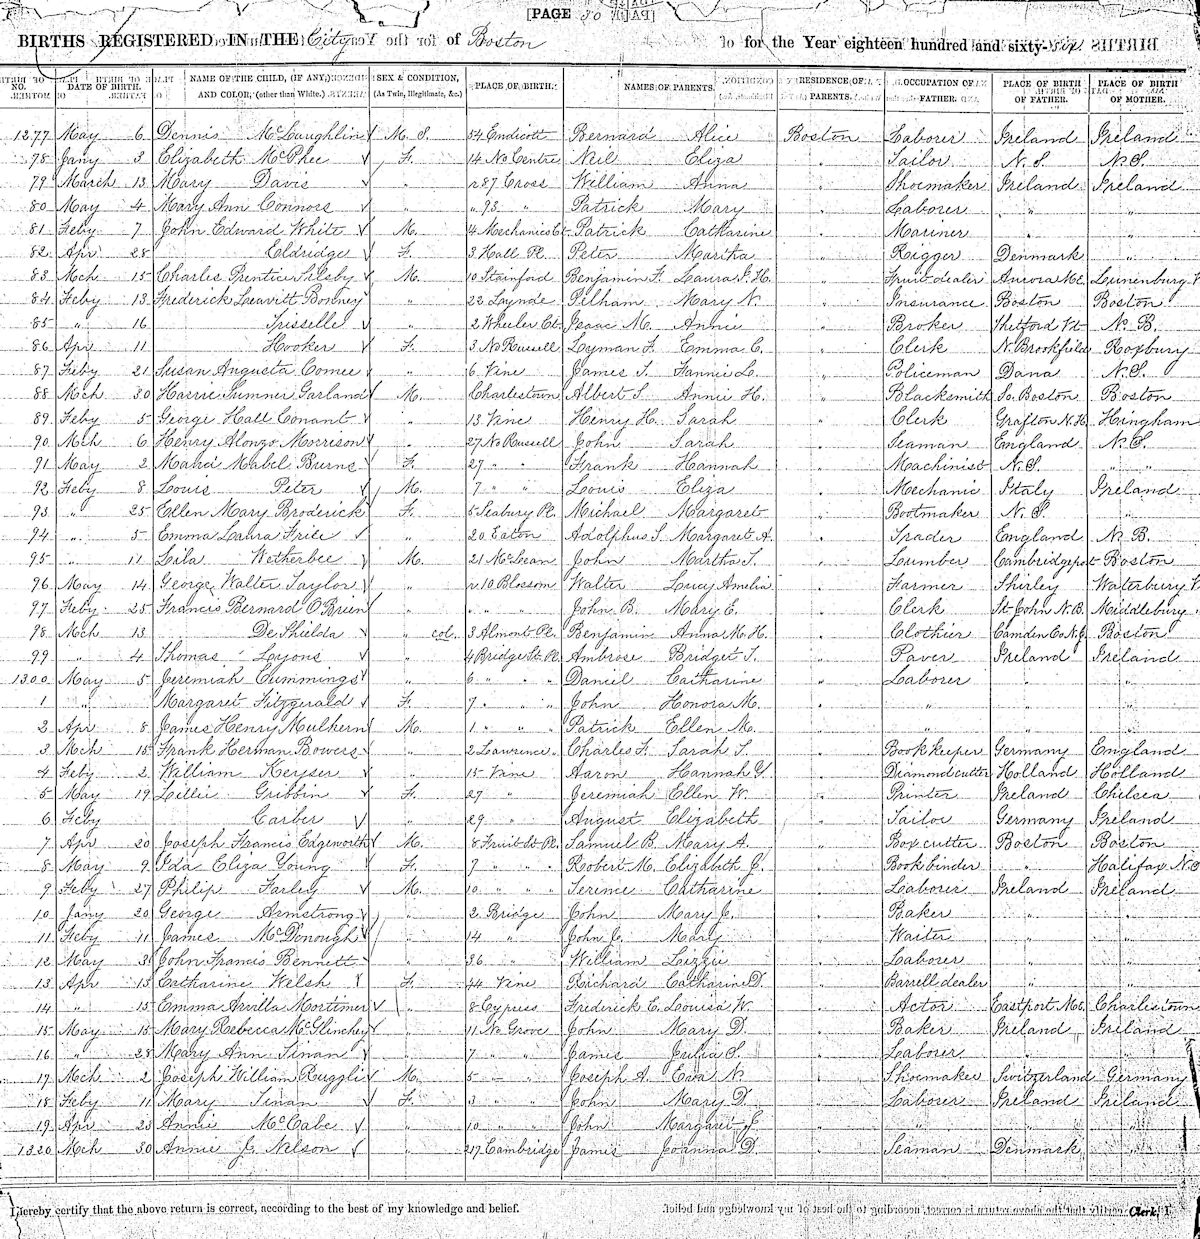 [PAGE 30]
BIRTHS REGISTERED IN THE City of Boston for the Year eighteen hundred and sixty-six
NO. DATE OF BIRTH. NAME OF THE CHILD, (IF ANY,) AND COLOR, (other than White.) SEX & CONDITION, (As Twin, Illegitimate, &c.) PLACE OF BIRTH. NAMES OF PARENTS. RESIDENCE OF PARENTS. OCCUPATION OF FATHER. PLACE OF BIRTH OF FATHER. PLACE OF BIRTH OF MOTHER.
1277 May 6 Dennis McLaughlin M. S. 54 Endicott Bernard Alice Boston Laborer Ireland Ireland
78 Jany 3 Elizabeth McPhee F. 14 No Centre Neil Eliza " Tailor N. S. N. S.
79 March 13 Mary Davis " r 87 Cross William Anna " Shoemaker Ireland Ireland
80 May 4 Mary Ann Connors " " 93 " Patrick Mary " Laborer " "
81 Feby 7 John Edward White M. 4 Mechanics Ct. Patrick Catharine " Mariner " "
82 Apr 28 Eldridge F. 3 Hall Pl. Peter Martha " Rigger Denmark "
83 Mch 15 Charles Prentiss Silsby M. 10 Staniford Benjamin F. Laura J. H. " Fruit dealer Aurora Me. Lunenburg V
84 Feby 13 Frederick Leavitt Bonney " 22 Lynde Pelham Mary N. " Insurance Boston Boston
85 " 16 Trisselle " 2 Wheeler Ct. Isaac M. Annie " Broker Thetford Vt N. B.
86 Apr 11 Hooker F. 3 No Russell Lyman F. Emma C. " Clerk N. Brookfield Roxbury
87 Feby 21 Susan Augusta Comee " 6 Vine James T. Fannie L. " Policeman Dana N. S.
88 Mch 30 Harrie Sumner Garland M. Charlestown Albert S. Annie H. " Blacksmith So. Boston Boston
89 Feby 5 George Hall Conant " 13 Vine Henry H. Sarah " Clerk Grafton N. H. Hingham
90 Mch 6 Henry Alonzo Morrison " 27 No Russell John Sarah " Seaman England N. S.
91 May 2 Maud Mabel Burns F. 27 " " Frank Hannah " Machinist N. S. " "
92 Feby 8 Louis Peter M. 7 " " Louis Eliza " Mechanic Italy Ireland
93 " 25 Ellen Mary Broderick F. 5 Seabury Pl. Michael Margaret " Bootmaker N. S. "
94 " 5 Emma Laura Frice " 20 Eaton Adolphus S. Margaret A. " Trader England N. B.
95 " 11 Lila Wetherbee M. 21 McLean John Martha T. " Lumber Cambridgeport Boston
96 May 14 George Walter Taylor " r 10 Blossom Walter Lucy Amelia " Farmer Shirley Waterbury V
97 Feby 25 Francis Bernard O'Brien " " " " John B. Mary E. " Clerk St. John N. B. Middlebury "
98 Mch 13 De Shields " col. 3 Almont Pl. Benjamin Anna M. H. " Clothier Camden Co N. J. Boston
99 " 4 Thomas Lyons " 4 Bridge St. Pl. Ambrose Bridget T. " Paver Ireland Ireland
1300 May 5 Jeremiah Cummings " 6 " " " Daniel Catharine " Laborer " "
1 " Margaret Fitzgerald F. 7 " " " John Honora M. " " " "
2 Apr 8 James Henry Mulkern M. 1 " " Patrick Ellen M. " " " "
3 Mch 15 Frank Herman Bowers " 2 Lawrence Charles F. Sarah T. " Bookkeeper Germany England
4 Feby 2 William Keyser " 15 Vine Aaron Hannah Y. " Diamond cutter Holland Holland
5 May 19 Lillie Gribbin F. 27 " Jeremiah Ellen W. " Printer Ireland Chelsea
6 Feby Carber " 29 " August Elizabeth " Tailor Germany Ireland
7 Apr 20 Joseph Francis Edgeworth M. 8 Fruit St. Pl. Samuel B. Mary A. " Box cutter Boston Boston
8 May 9 Ida Eliza Young F. 7 " " " Robert M. Elizabeth J. " Book binder " Halifax N. S
9 Feby 27 Philip Farley M. 10 " " " Terence Catharine " Laborer Ireland Ireland
10 Jany 20 George Armstrong " 2 Bridge John Mary J. " Baker " "
11 Feby 11 James McDonough " 14 " John J. Mary " Waiter " "
12 May 3 John Francis Bennett " 36 " William Lizzie " Laborer " "
13 Apr 13 Catharine Welsh F. 44 Vine Richard Catharine D. " Barrell dealer " "
14 " 15 Emma Arvilla Mortimer " 8 Cypress Frederick C. Louisa W. " Actor Eastport Me. Charlestown
15 May 15 Mary Rebecca McGlinchey " 11 No Grove John Mary D. " Baker Ireland Ireland
16 " 28 Mary Ann Tinan " 7 " " James Julia S. " Laborer " "
17 Mch 2 Joseph William Ruggli M. 5 " " Joseph A. Eva N. " Shoemaker Switzerland Germany
18 Feby 11 Mary Tinan F. 3 " " John Mary D. " Laborer Ireland Ireland
19 Apr 23 Annie McCabe " 10 " " John Margaret J. " " " "
1320 Mch 30 Annie J. Nelson " 217 Cambridge James Joanna D. " Seaman Denmark "
I hereby certify that the above return is correct, according to the best of my knowledge and belief.
Clerk.